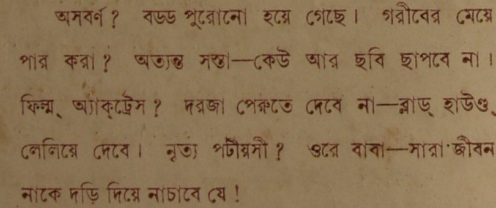 অসবর্ণ? বড্ড পুরোনো হয়ে গেছে। গরীবের মেয়ে
পার করা? অত্যন্ত সস্তা—কেউ আর ছবি ছাপবে না।
ফিল্ম্ অ্যাক্‌ট্রেস? দরজা পেরুতে দেবে না—ব্লাড্ হাউণ্ড্
লেলিয়ে দেবে। নৃত্য পটীয়সী? ওরে বাবা—সারা জীবন
নাকে দড়ি দিয়ে নাচাবে যে!